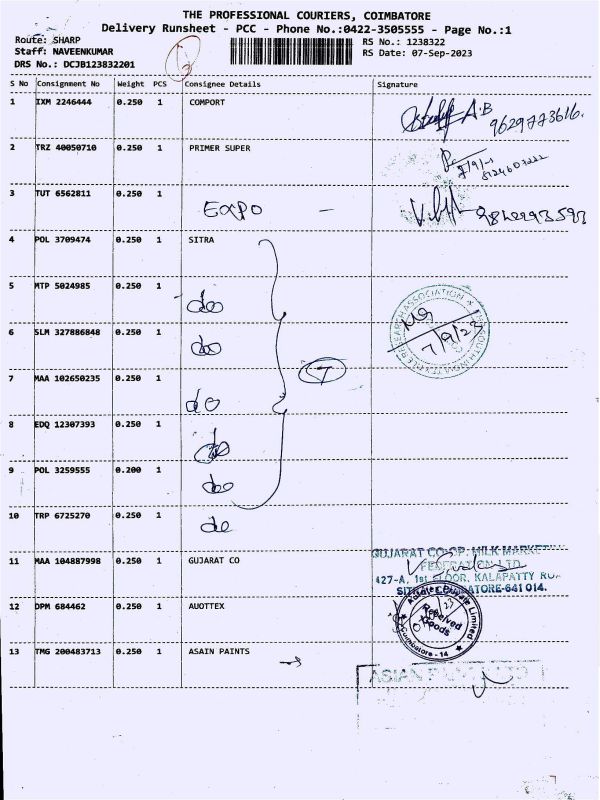 THE PROFESSIONAL COURIERS, COIMBATORE
Delivery Runsheet - PCC - Phone No.:0422-3505555 - Page No.:1
Route: SHARP
RS No.: 1238322
Staff: NAVEENKUMAR
RS Date: 07-Sep-2023
DRS No.: DCJB123832201
13
S No Consignment No Weight PCS Consignee Details Signature
1 IXM 2246444 0.250 1 COMPORT
A.B 9629773616.
2 TRZ 40050710 0.250 1 PRIMER SUPER
7/9/
3 TUT 6562811 0.250 1 Expo -
4 POL 3709474 0.250 1 SITRA
5 MTP 5024985 0.250 1 do
6 SLM 327886848 0.250 1 do
7 MAA 102650235 0.250 1 do
7
7/9/23
8 EDQ 12307393 0.250 1 do
9 POL 3259555 0.200 1 do
10 TRP 6725270 0.250 1 do
11 MAA 104887998 0.250 1 GUJARAT CO
GUJARAT CO-OP. MILK MARKET
FEDERATION LTD
427-A, 1st FLOOR, KALAPATTY
COIMBATORE-641 014.
12 DPM 684462 0.250 1 AUOTTEX
Private Limited
Received Goods
Coimbatore - 14
13 TMG 200483713 0.250 1 ASAIN PAINTS
ASIAN